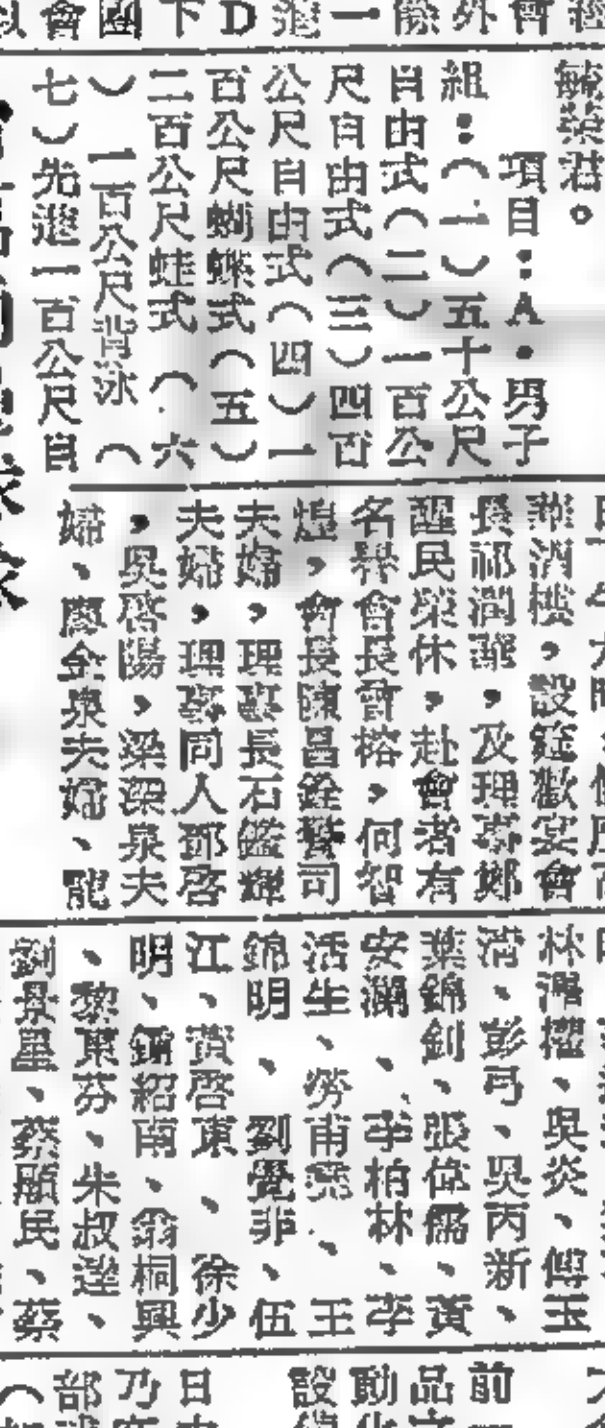 經會外餘一選D下國會以
敏榮君。
項目：A・男子
組：（一）五十公尺
自由式（二）一百公
尺自由式（三）四百
公尺自由式（四）一
百公尺蝴蝶式（五）
二百公尺蛙式（六
）一百公尺背泳（
七）先進一百公尺自
酒樓，設筵歡宴會
長祁潤華，及理事鄉
醒民榮休，赴會者有
名譽會長曾榕，何智
煌，會長陳昌銓賢司
夫婦，理事長石鑑輝
夫婦，理事同人鄧啓
，吳啓陽，梁梁泉夫
婦、廖金泉夫婦、龍
林濯擢、吳炎、傅玉
滔、彭弓、吳丙新、
葉錦釗、張偉儒、黃
安瀾、李柏林、李
活生、勞甫燕、王
錦明、劉覺非、伍
江、黃啓東、徐少
明、鍾紹南、翁桐興
、黎東芬、朱叔達、
劉景星、蔡顯民、蔡
前
品
動
設
日
乃
部
（